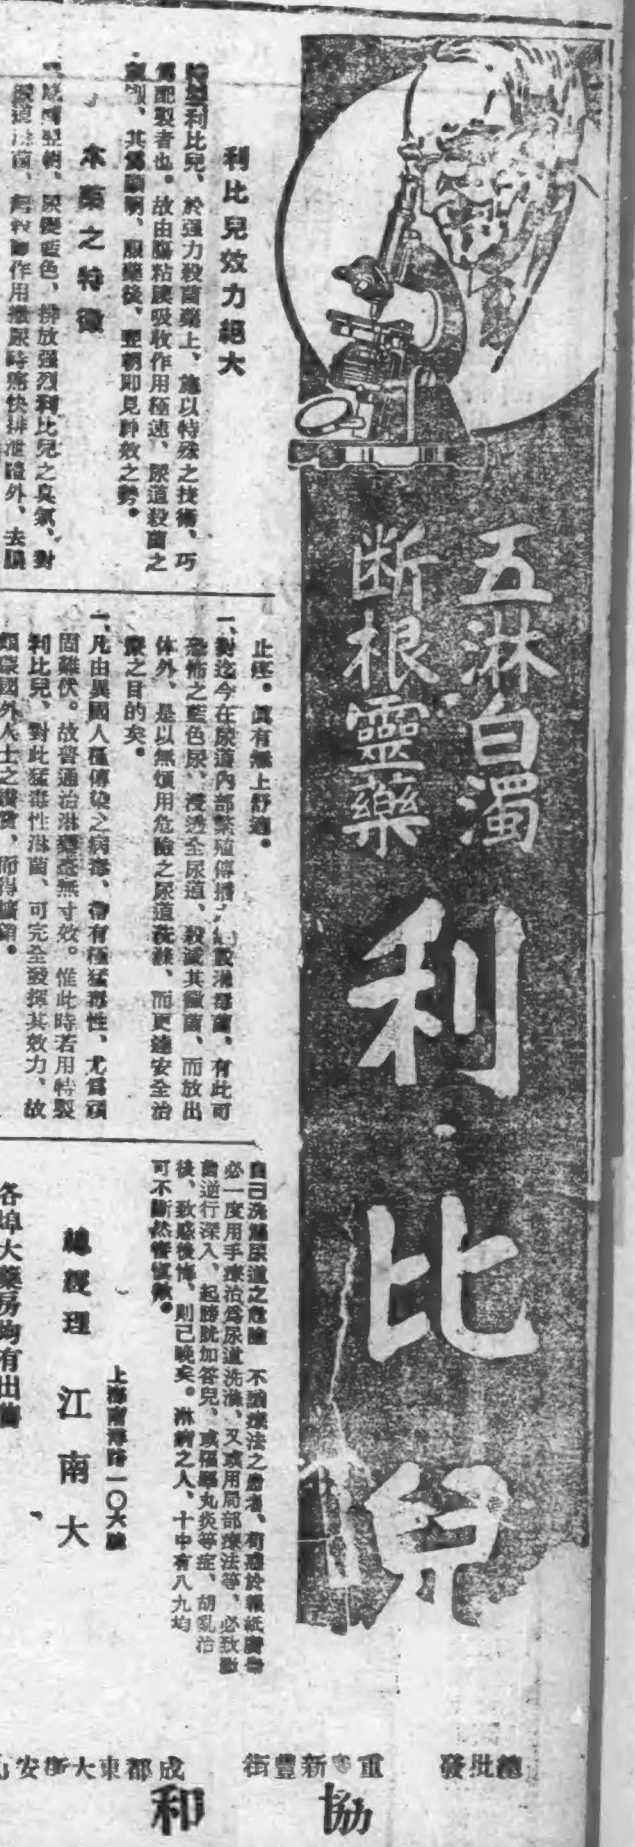 五淋白濁
断根靈藥
利比兒
利比兒效力絕大
利比兒、於强力殺菌藥上、施以特殊之技術、巧
爲配製者也。故由腸粘膜吸收作用極速、尿道殺菌之
其爲顯明、服藥後、翌朝即見靜效之勢。
本藥之特徵
翌朝、尿變藍色、排放强烈利比兒之臭氣、對
作用撒尿時痛快排泄體外、去膿
止疼。眞有無上舒適。
一、對迄今在尿道內部繁殖傳播 淋毒菌、有此可
恐怖之藍色尿、浸透全尿道、殺滅其黴菌、而放出
体外、是以無煩用危險之尿道洗滌、而更達安全治
療之目的矣。
一、凡由異國人種傳染之病毒、帶有極猛毒性、尤爲頑
固難伏。故普通治淋藥毫無寸效。惟此時若用特製
利比兒、對此猛毒性淋菌、可完全發揮其效力、故
頗蒙國外人士之讚賞、而得擴銷。
自己洗滌尿道之危險 不諳療法之患者、苟惑於報紙廣告
必一度用手療治爲尿道洗滌、又或用局部療法等、必致黴
菌逆行深入、起膀胱加答兒、或睾丸炎等症、胡亂治
後、致惑後悔、則已晚矣。淋病之人、十中有八九均
可不斷然審愼歟。
上海 路一〇六號
總經理 江南大
各埠大藥房均有出售
總批發 重慶新豐街 成都東大街安
協和